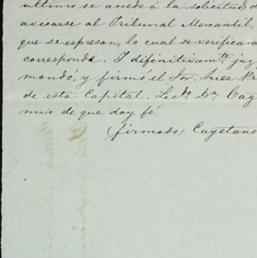 último se accede á la solicitud d
avisarse al Tribunal Mercantil,
que se espresan, lo cual se verifica
corresponda. I difinitivamte. juz
mandó y firmó el Sor. Juez
de esta Capital. Lcdo. Dn. Cay
mio de que doy fé
(firmado) Cayetano